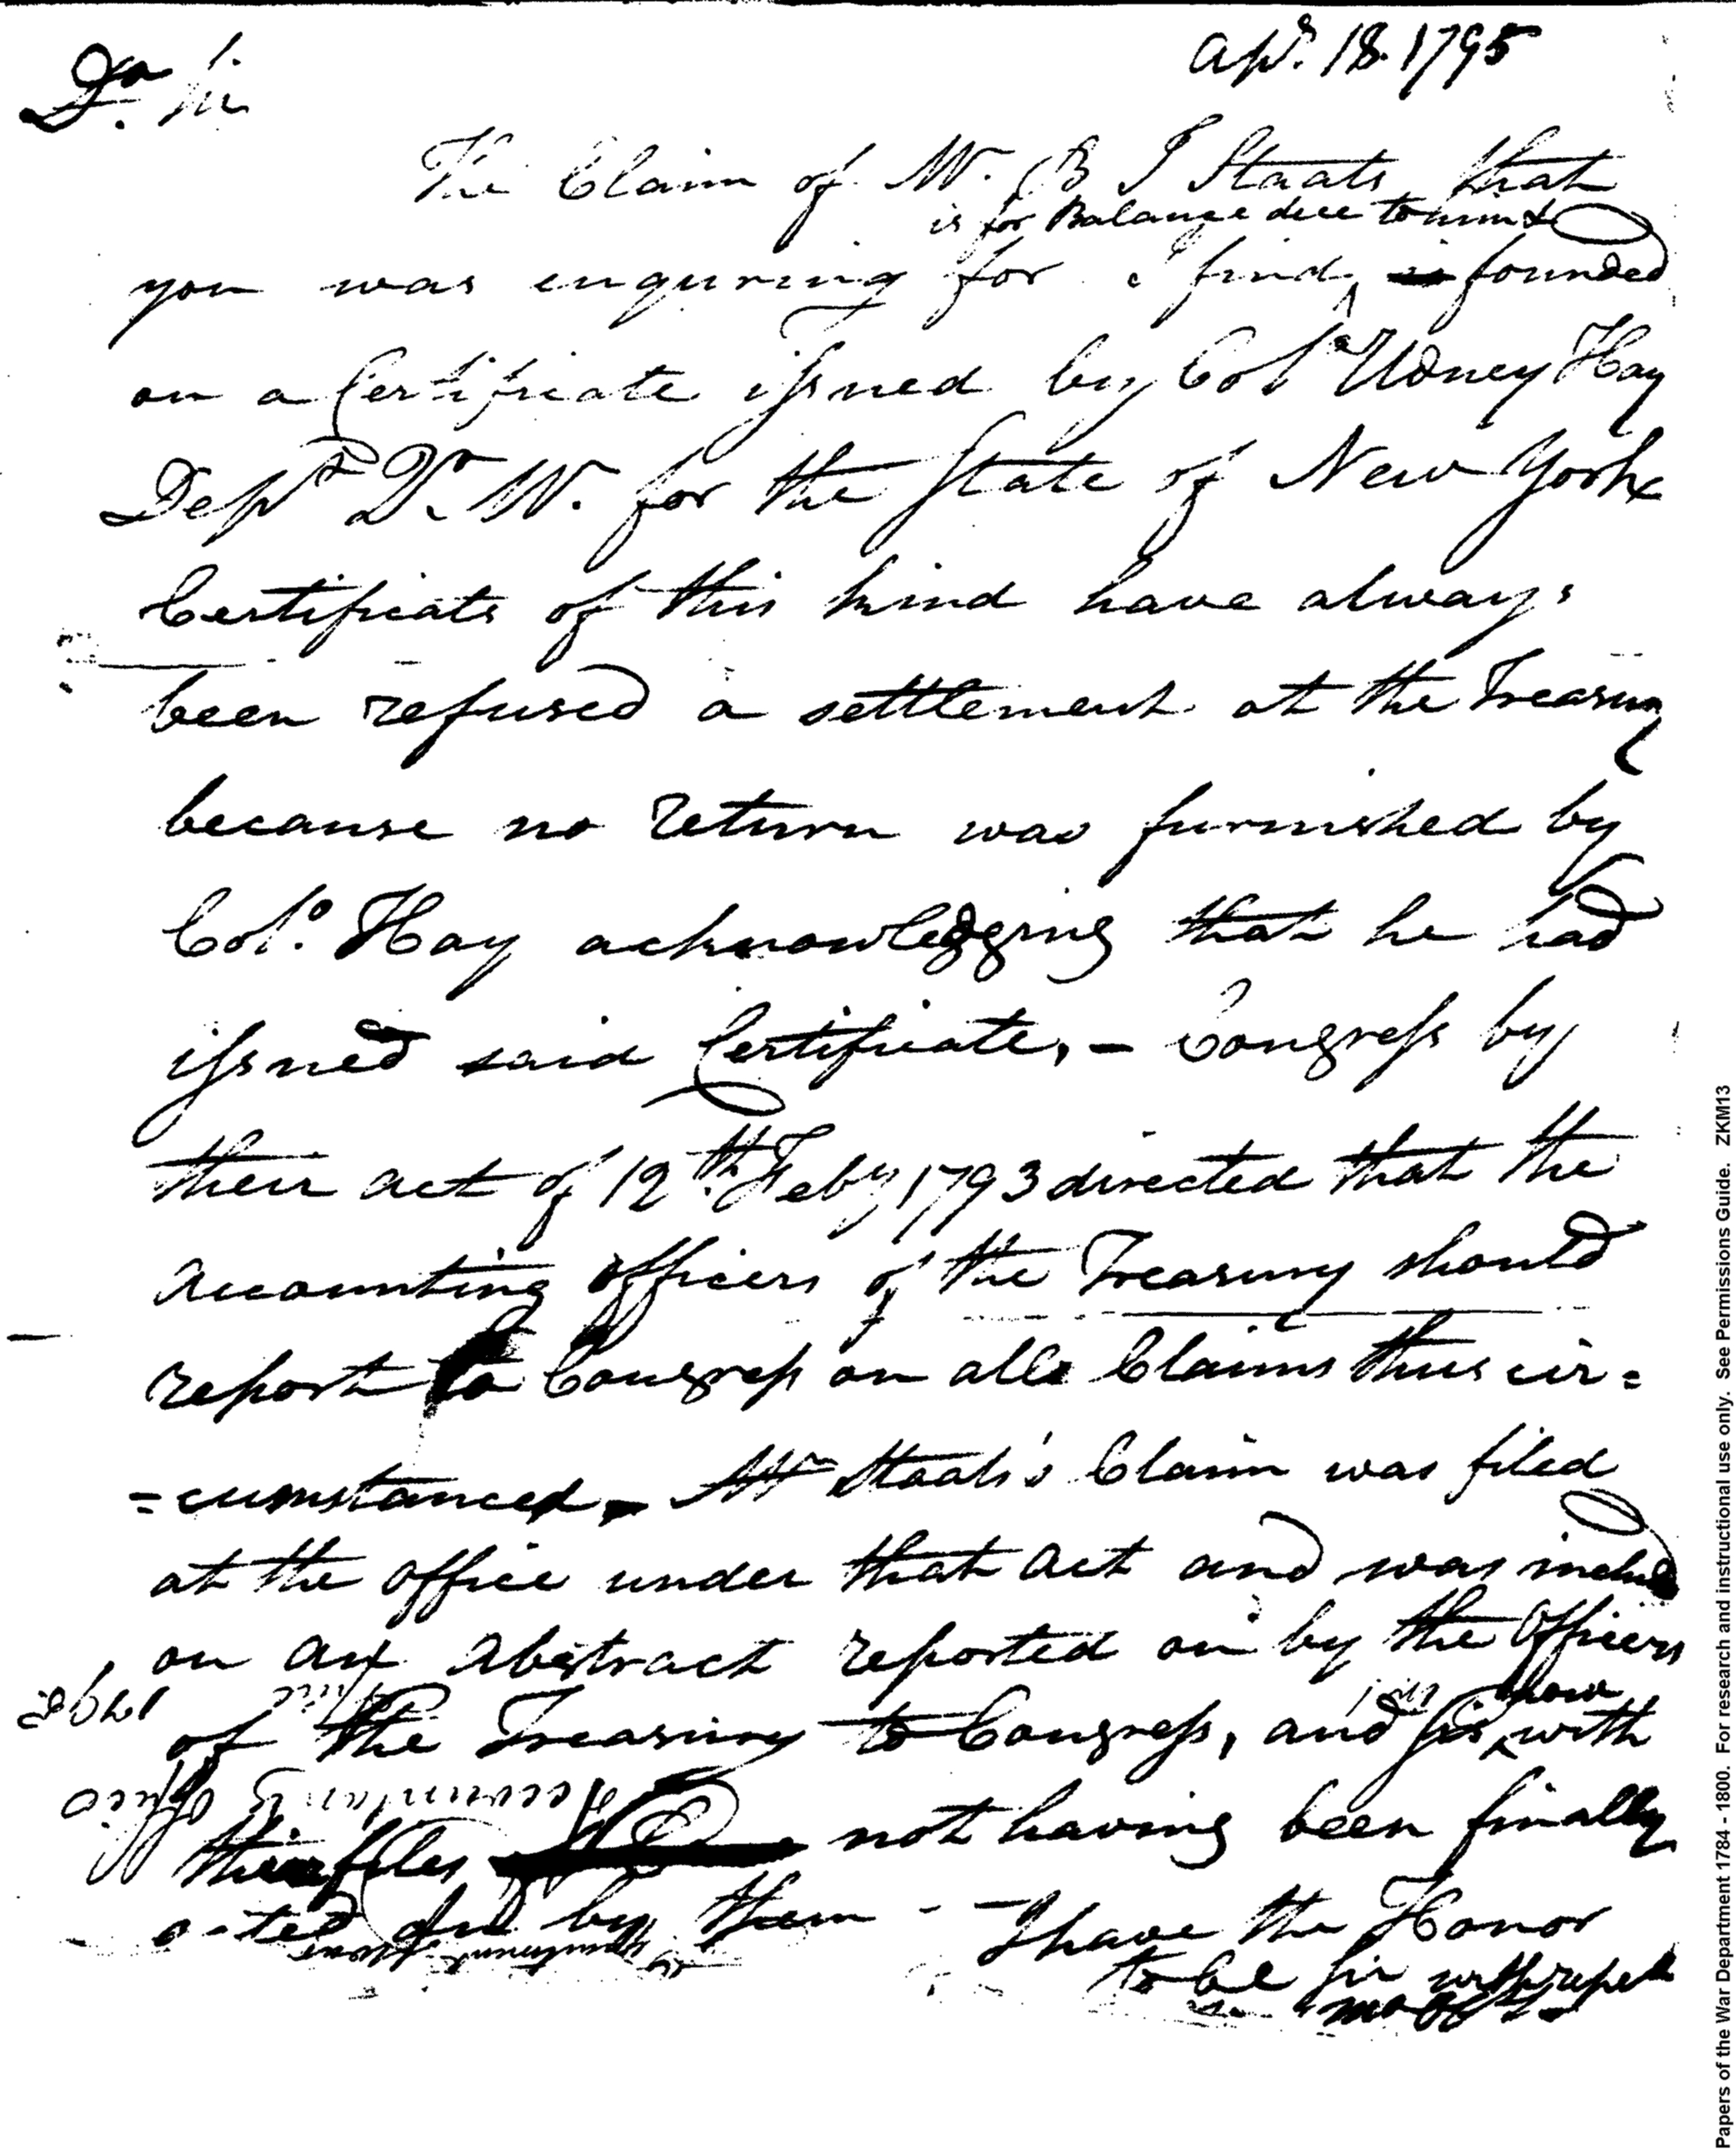 Apl. 18. 1795
Dr. Sir
The Claim of Mr. B J Staats, that
is for Balance due to him &
you was enquiring for I find, founded
on a Certificate issued by Colo Udney Hay
Depy Q. M. for the State of New York
Certificats of this kind have always
been refused a settlement at the Treasury
because no return was furnished by
Colo. Hay acknowledging that he had
issued said Certificate, - Congress by
their act of 12th. Feby 1793 directed that the
accounting officers of the Treasury should
report to Congress on all Claims thus cir=
=cumstanced, Mr Staats's Claim was filed
at the office under that act and was includ
on an abstract reported on by the Officers
of the Treasury to Congress, and is now with
their files not having been finally
acted on by them - I have the Honor
to be sir with respect
mo Obt
1795
Accountant's Office
Papers of the War Department 1784 - 1800. For research and instructional use only. See Permissions Guide. ZKM13